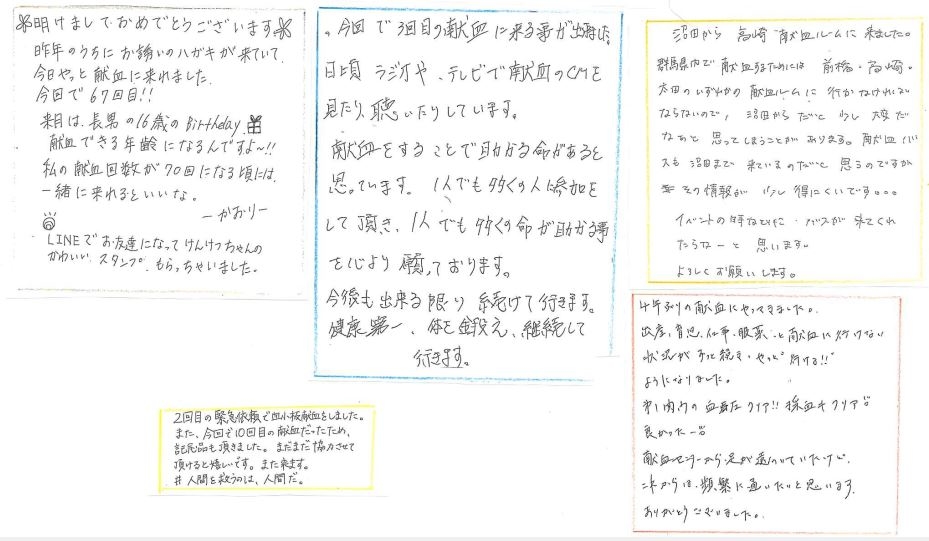 明けましておめでとうございます
昨年のうちにお誘いのハガキが来ていて、
今日やっと献血に来れました。
今回で67回目!!
来月は、長男の16歳のBirthday
献血できる年齢になるんですよ〜!!
私の献血回数が70回になる頃には、
一緒に来れるといいな。
ーかおりー
LINEでお友達になってけんけつちゃんの
かわいいスタンプ、もらっちゃいました。
今回で3回目の献血に来る事が出来ました。
日頃ラジオや、テレビで献血のCMを
見たり、聴いたりしています。
献血をすることで助かる命があると
思っています。1人でも多くの人に参加を
して頂き、1人でも多くの命が助かる事
を心より願っております。
今後も出来る限り続けて行きます。
健康第一、体を鍛え、継続して
行きます。
沼田から高崎献血ルームに来ました。
群馬県内で献血するためには前橋・高崎・
太田のいずれかの献血ルームに行かなければ
ならないので、沼田からだと少し大変だ
なぁと思ってしまうことがあります。献血バ
スも沼田まで来ているのだと思うのですが
その情報が少し得にくいです。。。
イベントの時などに・バスが来てくれ
たらなーと思います。
よろしくお願いします。
2回目の緊急依頼で血小板献血をしました。
また、今回で10回目の献血だったため、
記念品も頂きました。まだまだ協力させて
頂けると嬉しいです。また来ます。
#人間を救うのは、人間だ。
4年ぶりの献血にやってきました。
出産、育児、仕事、服薬、と献血に行けない
状況がずっと続き、やっと"行ける!!"
ようになりました。
血圧クリア!!採血もクリア
良かったー
献血センターから足が遠のいていたけど、
これからは、頻繁に通いたいと思います。
ありがとうございました。